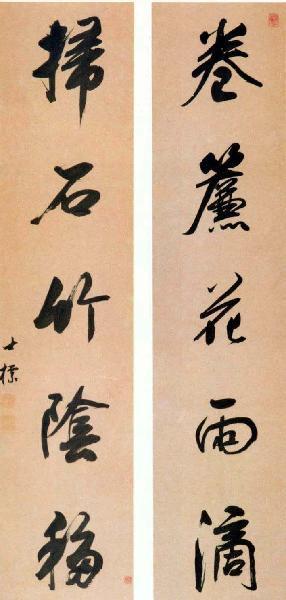 卷簾花雨滴
掃石竹陰移
士標